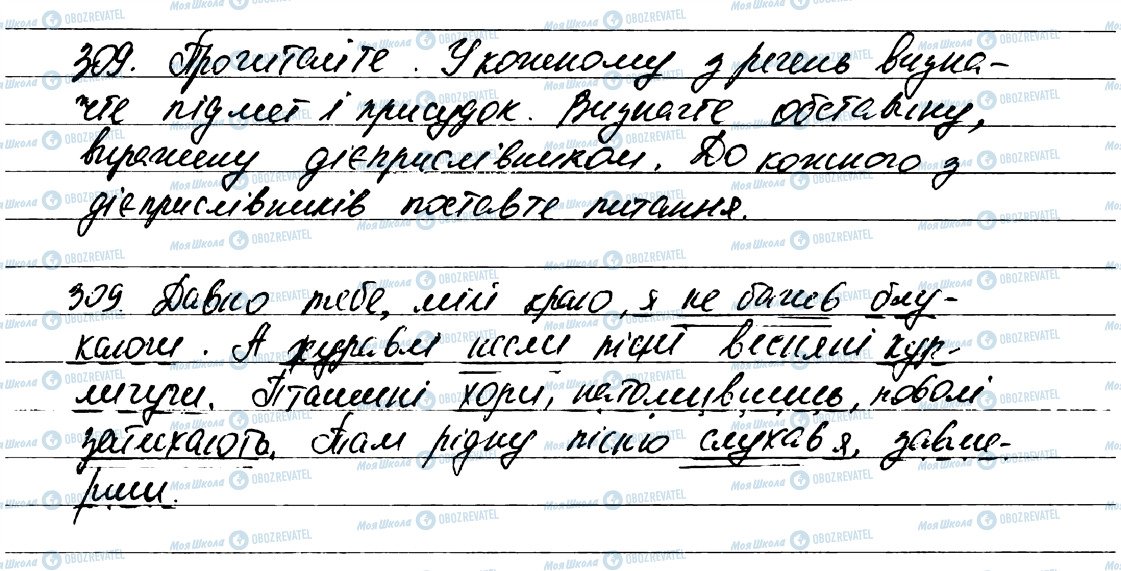 309. Прочитайте. У кожному з речень визна-
чте підмет і присудок. Визначте обставину,
виражену дієприслівником. До кожного з
дієприслівників поставте питання.
309. Давно тебе, мій краю, я не бачив блу-
каючи. А журавлі несли пісні весняні кур-
личучи. Пташині хори, натомившись, поволі
затихають. Там рідну пісню слухав я, завме-
рши.